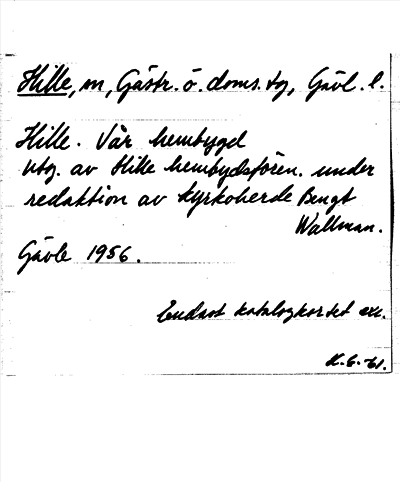 Hille, sn, Gästr. ö. doms. tg, Gävl. l.
Hille. Vår hembygd
utg. av Hille hembydsfören. under
redaktion av kyrkoherde Bengt
Wallman.
Gävle 1956.
Endast katalogkortet exc.
K.G.-61.